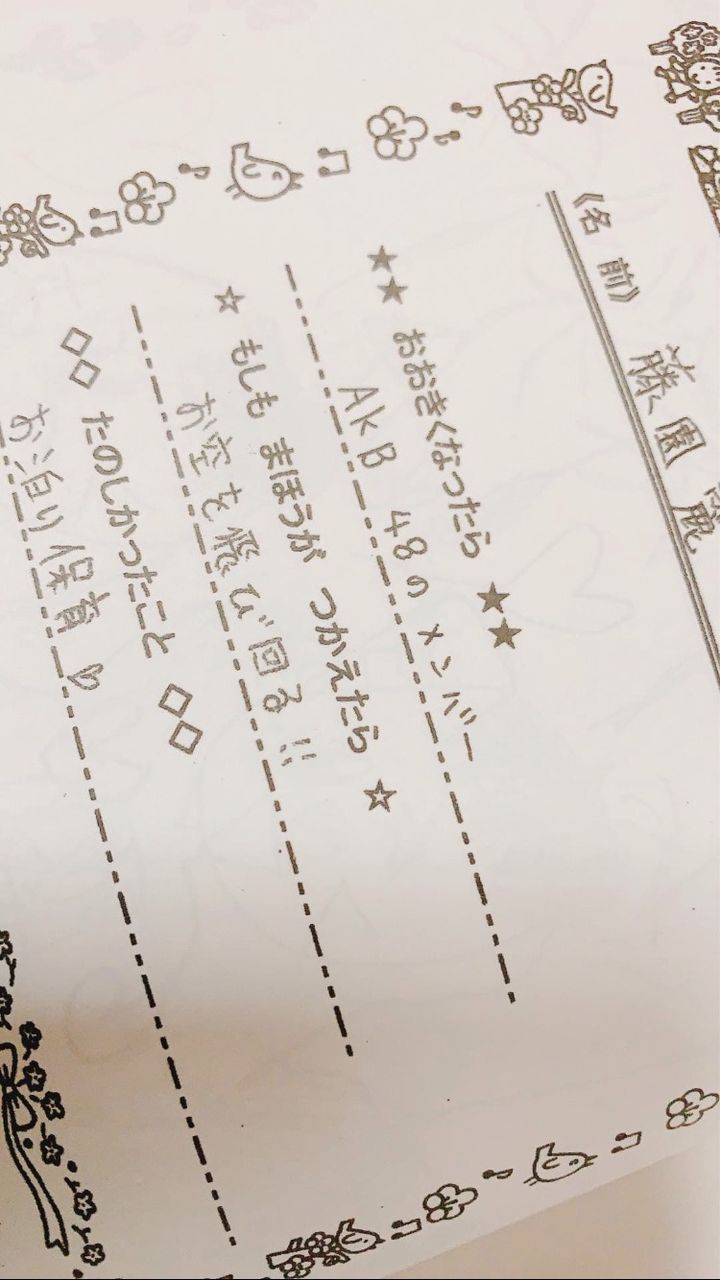 《名前》 藤園 麗
★★ おおきくなったら ★★
AkB 48の メンバー
☆ もしも まほうが つかえたら ☆
お空を飛び回る!!
◇◇ たのしかったこと ◇◇
お泊り保育♡